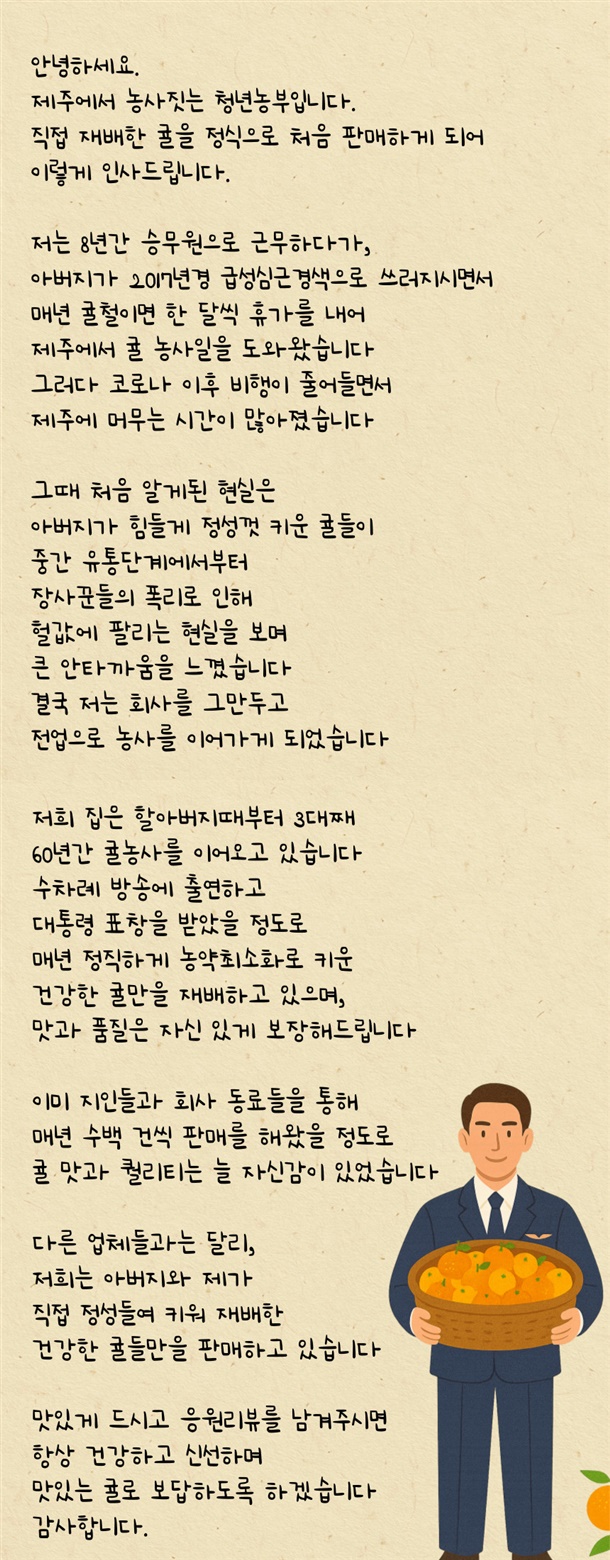 안녕하세요.
제주에서 농사짓는 청년농부입니다.
직접 재배한 귤을 정식으로 처음 판매하게 되어
이렇게 인사드립니다.
저는 8년간 승무원으로 근무하다가,
아버지가 2017년경 급성심근경색으로 쓰러지시면서
매년 귤철이면 한 달씩 휴가를 내어
제주에서 귤 농사일을 도와왔습니다
그러다 코로나 이후 비행이 줄어들면서
제주에 머무는 시간이 많아졌습니다
그때 처음 알게된 현실은
아버지가 힘들게 정성껏 키운 귤들이
중간 유통단계에서부터
장사꾼들의 폭리로 인해
헐값에 팔리는 현실을 보며
큰 안타까움을 느꼈습니다
결국 저는 회사를 그만두고
전업으로 농사를 이어가게 되었습니다
저희 집은 할아버지때부터 3대째
60년간 귤농사를 이어오고 있습니다
수차례 방송에 출연하고
대통령 표창을 받았을 정도로
매년 정직하게 농약최소화로 키운
건강한 귤만을 재배하고 있으며,
맛과 품질은 자신 있게 보장해드립니다
이미 지인들과 회사 동료들을 통해
매년 수백 건씩 판매를 해왔을 정도로
귤 맛과 퀄리티는 늘 자신감이 있었습니다
다른 업체들과는 달리,
저희는 아버지와 제가
직접 정성들여 키워 재배한
건강한 귤들만을 판매하고 있습니다
맛있게 드시고 응원리뷰를 남겨주시면
항상 건강하고 신선하며
맛있는 귤로 보답하도록 하겠습니다
감사합니다.